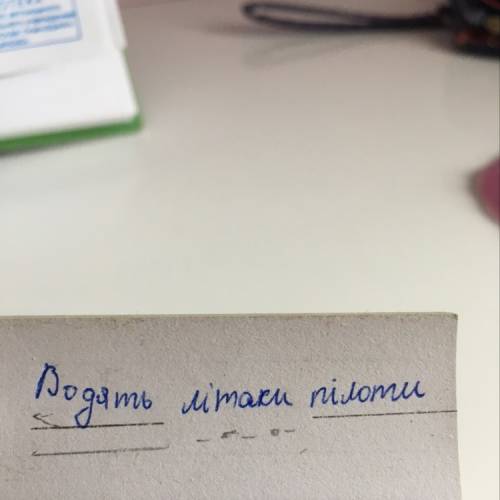 Водять літаки пілоти